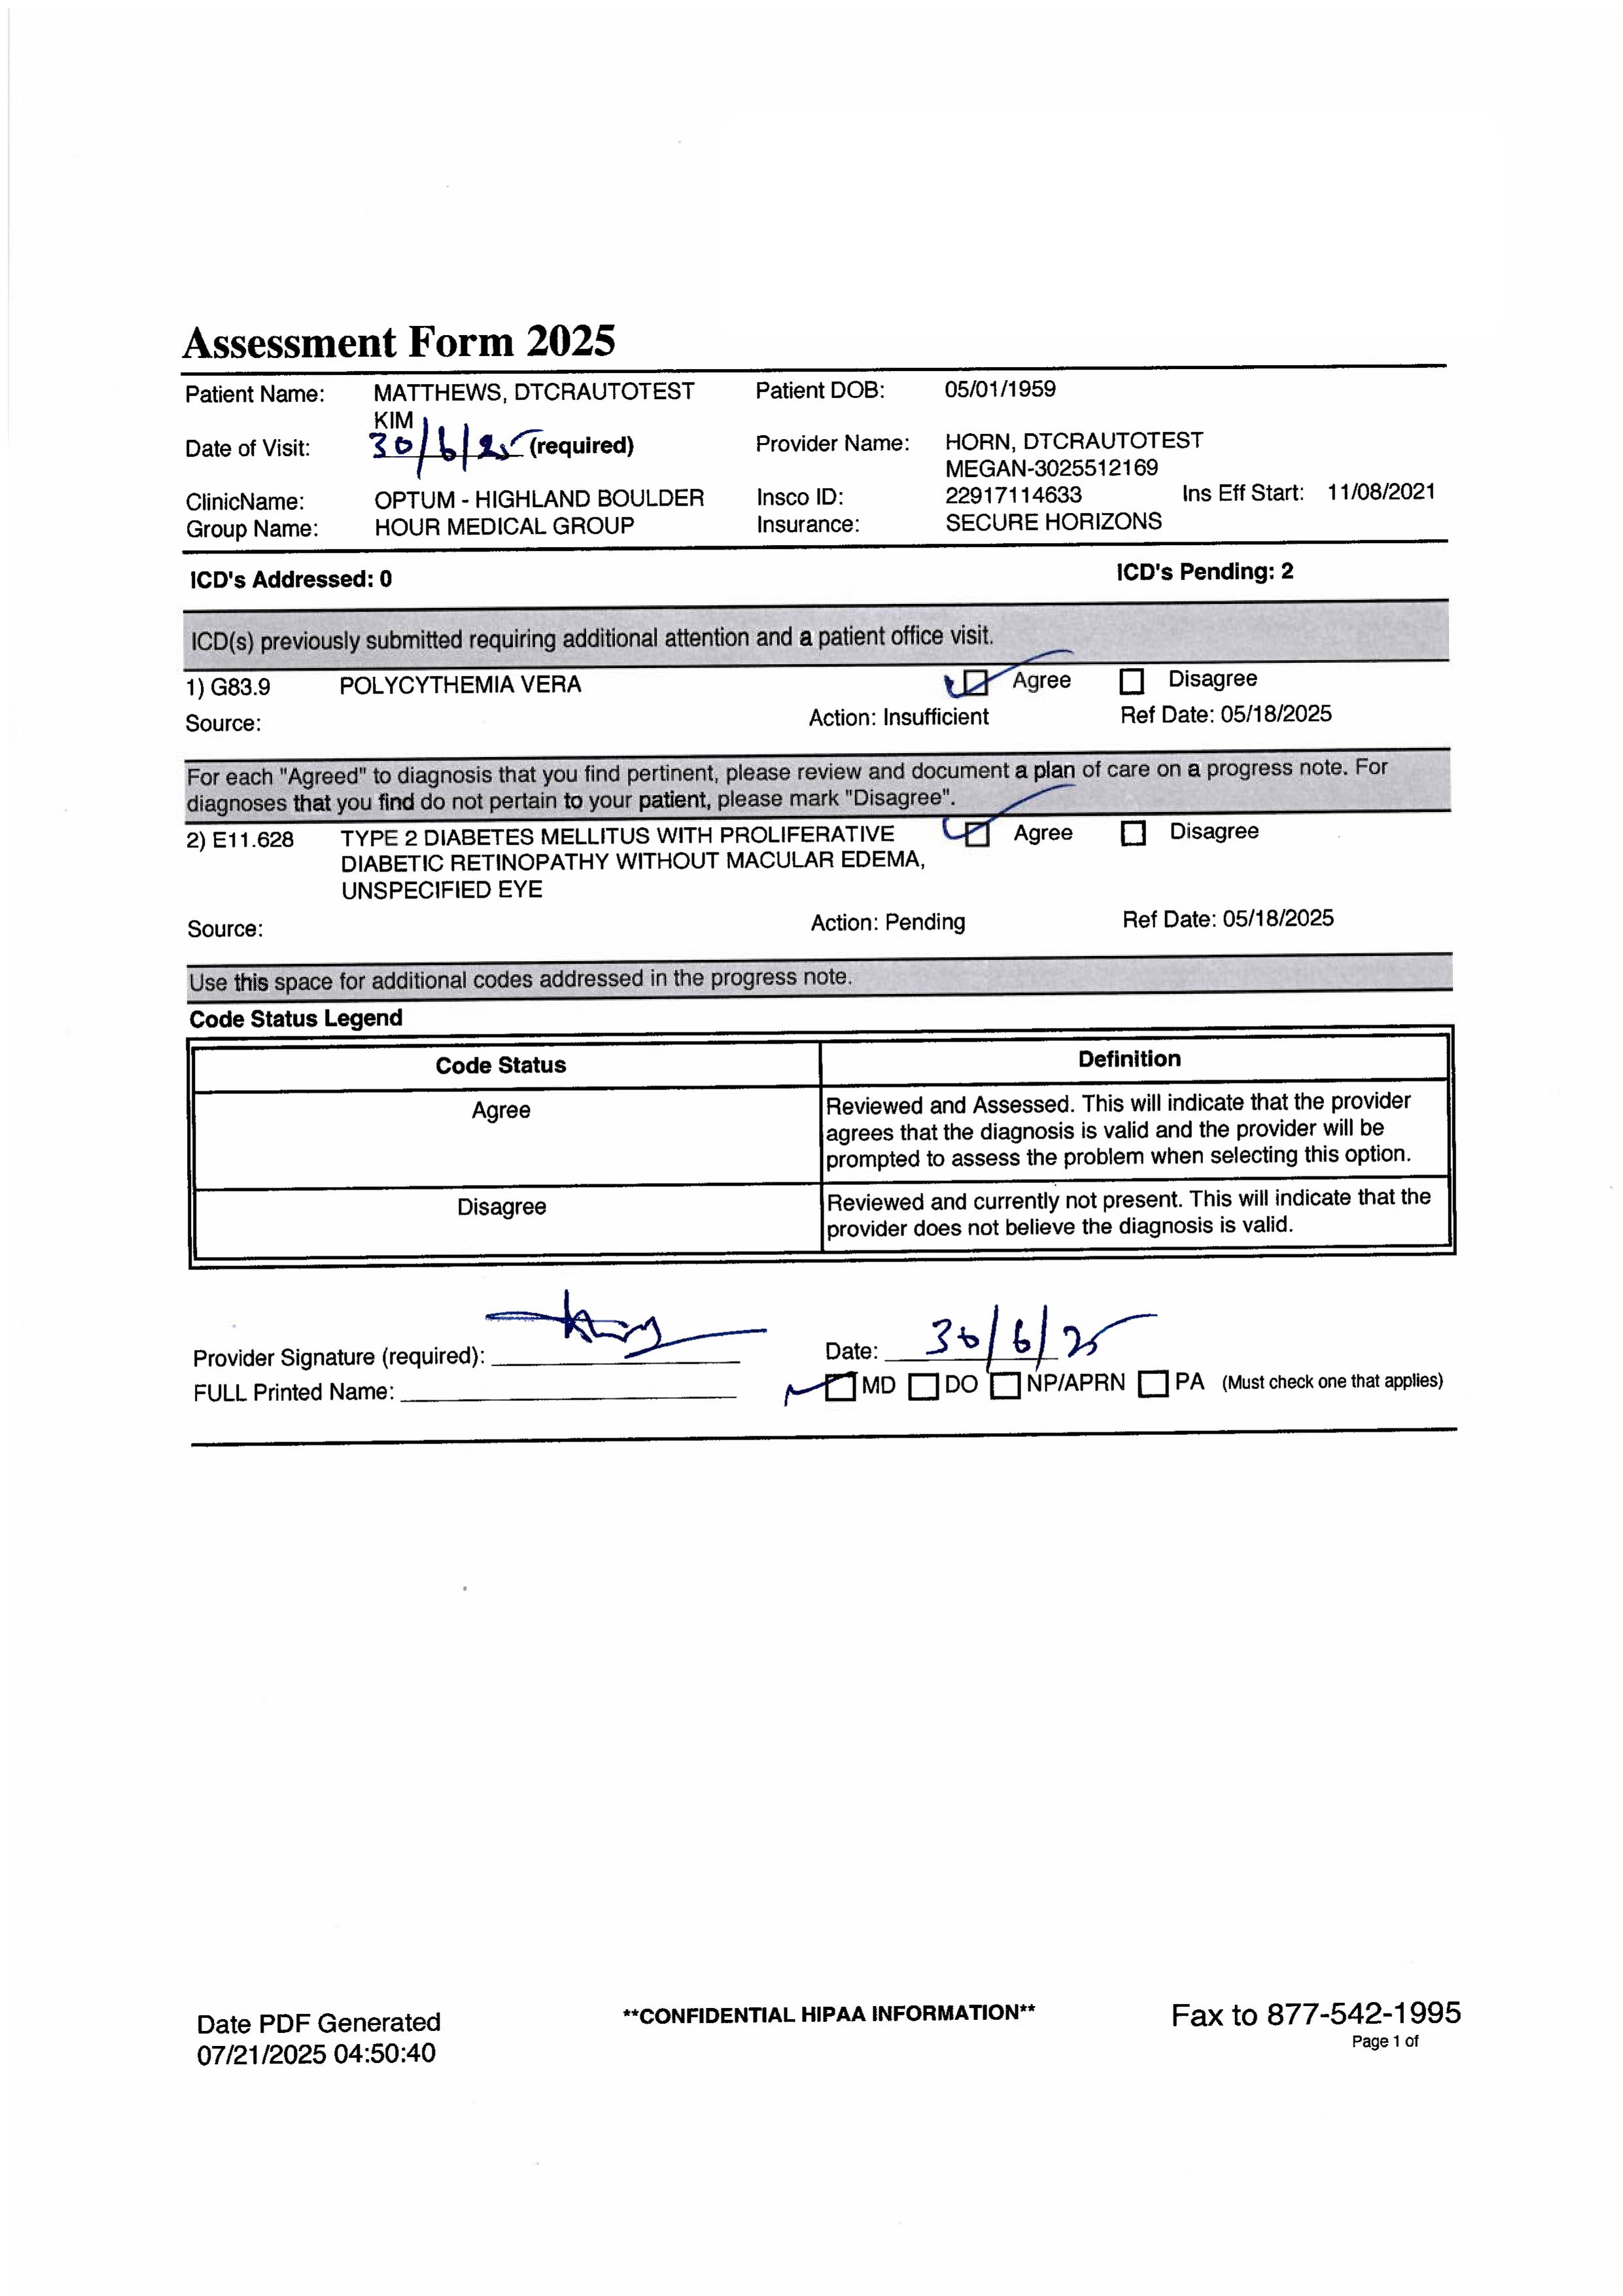 Assessment Form 2025
Patient Name: MATTHEWS, DTCRAUTOTEST KIM Patient DOB: 05/01/1959
Date of Visit: 30/6/25 (required) Provider Name: HORN, DTCRAUTOTEST MEGAN-3025512169
ClinicName: OPTUM - HIGHLAND BOULDER Insco ID: 22917114633 Ins Eff Start: 11/08/2021
Group Name: HOUR MEDICAL GROUP Insurance: SECURE HORIZONS
ICD's Addressed: 0 ICD's Pending: 2
ICD(s) previously submitted requiring additional attention and a patient office visit.
1) G83.9 POLYCYTHEMIA VERA Agree Disagree
Source: Action: Insufficient Ref Date: 05/18/2025
For each "Agreed" to diagnosis that you find pertinent, please review and document a plan of care on a progress note. For
diagnoses that you find do not pertain to your patient, please mark "Disagree".
2) E11.628 TYPE 2 DIABETES MELLITUS WITH PROLIFERATIVE Agree Disagree
DIABETIC RETINOPATHY WITHOUT MACULAR EDEMA,
UNSPECIFIED EYE
Source: Action: Pending Ref Date: 05/18/2025
Use this space for additional codes addressed in the progress note.
Code Status Legend
Code Status Definition
Agree Reviewed and Assessed. This will indicate that the provider
agrees that the diagnosis is valid and the provider will be
prompted to assess the problem when selecting this option.
Disagree Reviewed and currently not present. This will indicate that the
provider does not believe the diagnosis is valid.
Provider Signature (required): Date: 30/6/25
FULL Printed Name: MD DO NP/APRN PA (Must check one that applies)
Date PDF Generated **CONFIDENTIAL HIPAA INFORMATION** Fax to 877-542-1995
07/21/2025 04:50:40 Page 1 of